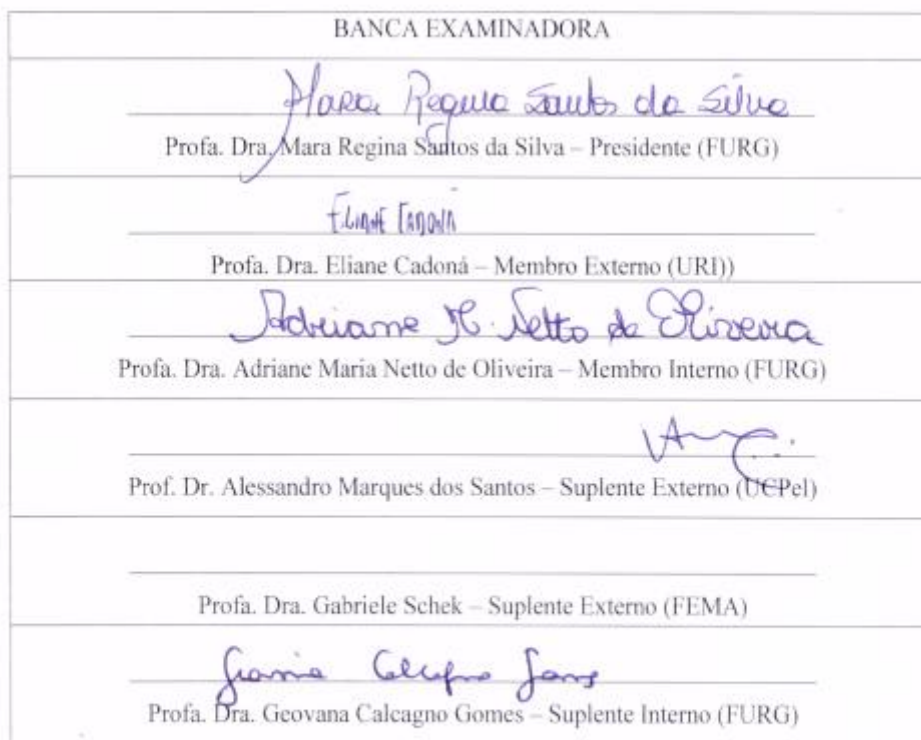 BANCA EXAMINADORA
Mara Regina Santos da Silva
Profa. Dra. Mara Regina Santos da Silva – Presidente (FURG)
Eliane Cadoná
Profa. Dra. Eliane Cadoná – Membro Externo (URI))
Adriane M. Netto de Oliveira
Profa. Dra. Adriane Maria Netto de Oliveira – Membro Interno (FURG)
Prof. Dr. Alessandro Marques dos Santos – Suplente Externo (UCPel)
Profa. Dra. Gabriele Schek – Suplente Externo (FEMA)
Calcagno
Profa. Dra. Geovana Calcagno Gomes – Suplente Interno (FURG)